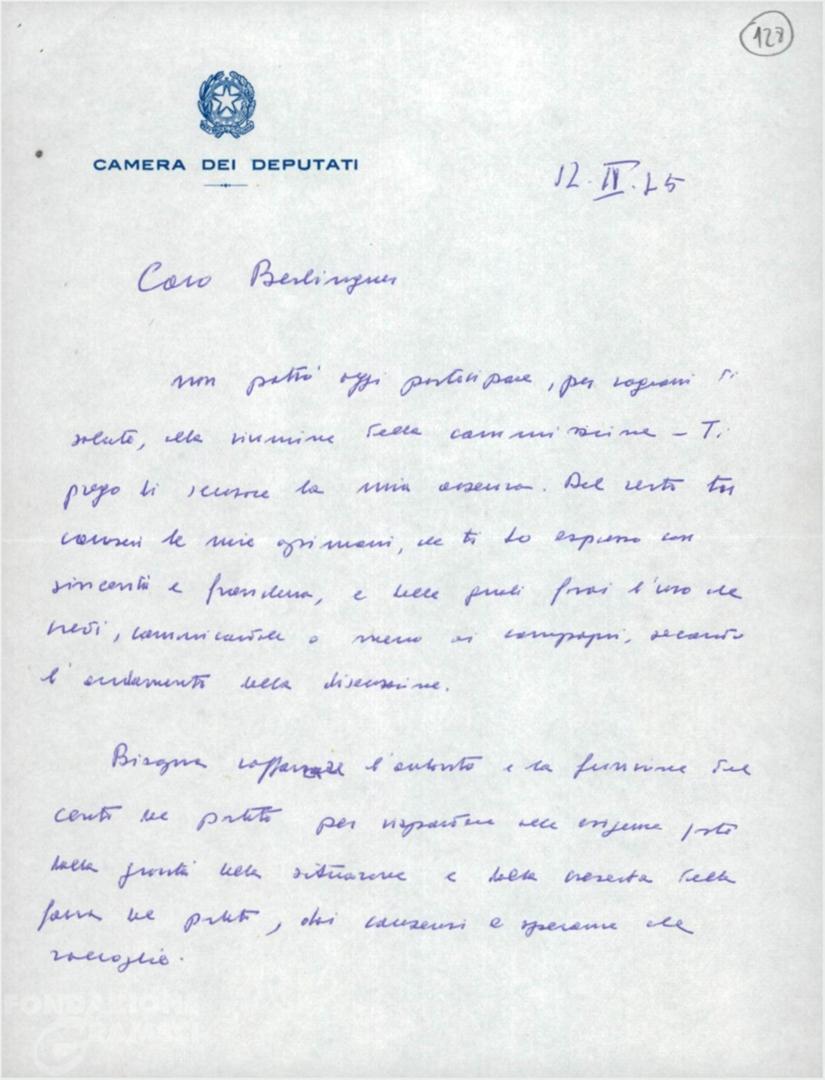 128
CAMERA DEI DEPUTATI
12.IV.75
Caro Berlinguer
non potrò oggi partecipare, per ragioni di
salute, alla riunione della commissione - Ti
prego di scusare la mia assenza. Del resto tu
conosci le mie opinioni, che ti ho espresso con
sincerità e franchezza, e delle quali farai l'uso che
credi, comunicandole o meno ai compagni, secondo
l'andamento della discussione.
Bisogna rafforzare l'autorità e la funzione del
centro del partito per rispondere alle esigenze poste
dalla gravità della situazione e dalla crescita della
forza del partito, dai consensi e speranze che
raccoglie.
FONDAZIONE
GRAMSCI